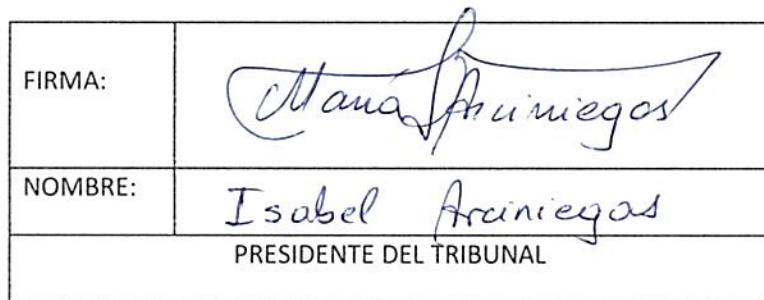 FIRMA:
María I Arciniegas
NOMBRE:
Isabel Arciniegas
PRESIDENTE DEL TRIBUNAL